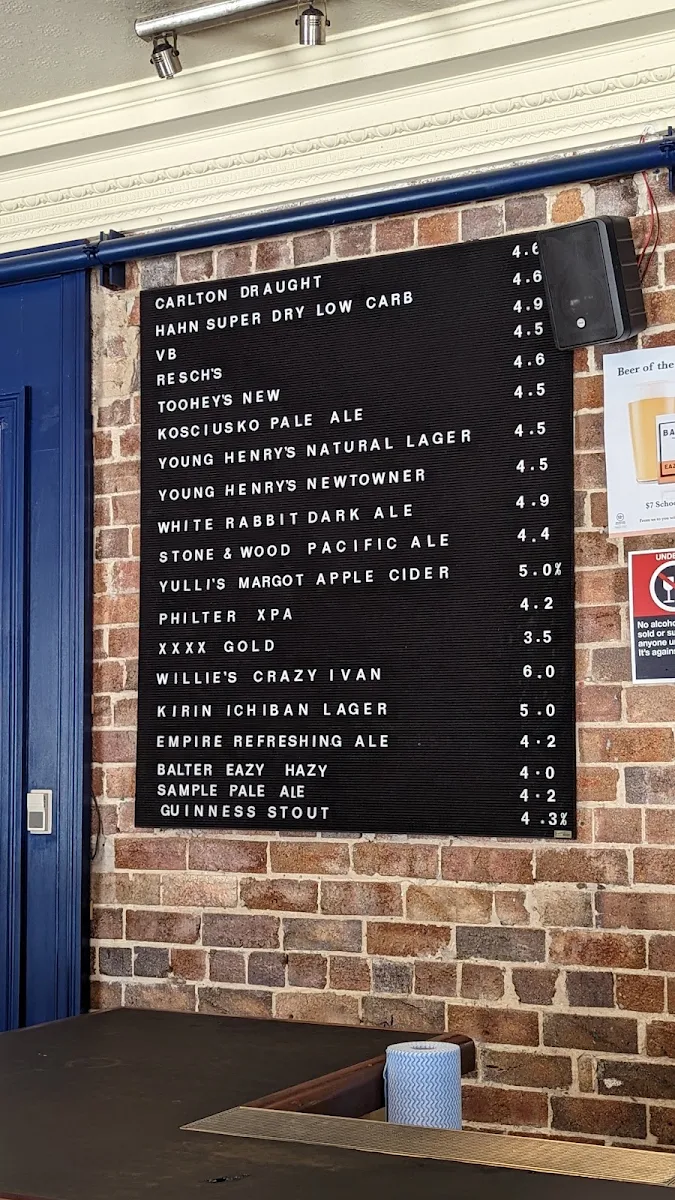 CARLTON DRAUGHT 4.6
HAHN SUPER DRY LOW CARB 4.6
VB 4.9
RESCH'S 4.5
TOOHEY'S NEW 4.6
KOSCIUSKO PALE ALE 4.5
YOUNG HENRY'S NATURAL LAGER 4.5
YOUNG HENRY'S NEWTOWNER 4.5
WHITE RABBIT DARK ALE 4.9
STONE & WOOD PACIFIC ALE 4.4
YULLI'S MARGOT APPLE CIDER 5.0%
PHILTER XPA 4.2
XXXX GOLD 3.5
WILLIE'S CRAZY IVAN 6.0
KIRIN ICHIBAN LAGER 5.0
EMPIRE REFRESHING ALE 4.2
BALTER EAZY HAZY 4.0
SAMPLE PALE ALE 4.2
GUINNESS STOUT 4.3%
Beer of the
BA
$7 Schoo
UNDE
No alcoho
sold or su
anyone un
It's agains